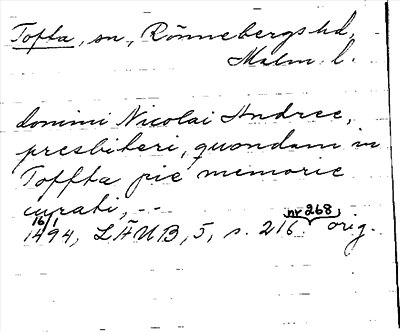 Tofta, sn, Rönnebergs hd,
Malm. l.
domini Nicolai Andree,
presbiteri, quondam in
Toffta pie memorie
curati, --
16/1
1494, LÄUB, 5, s. 216. nr 268, orig.